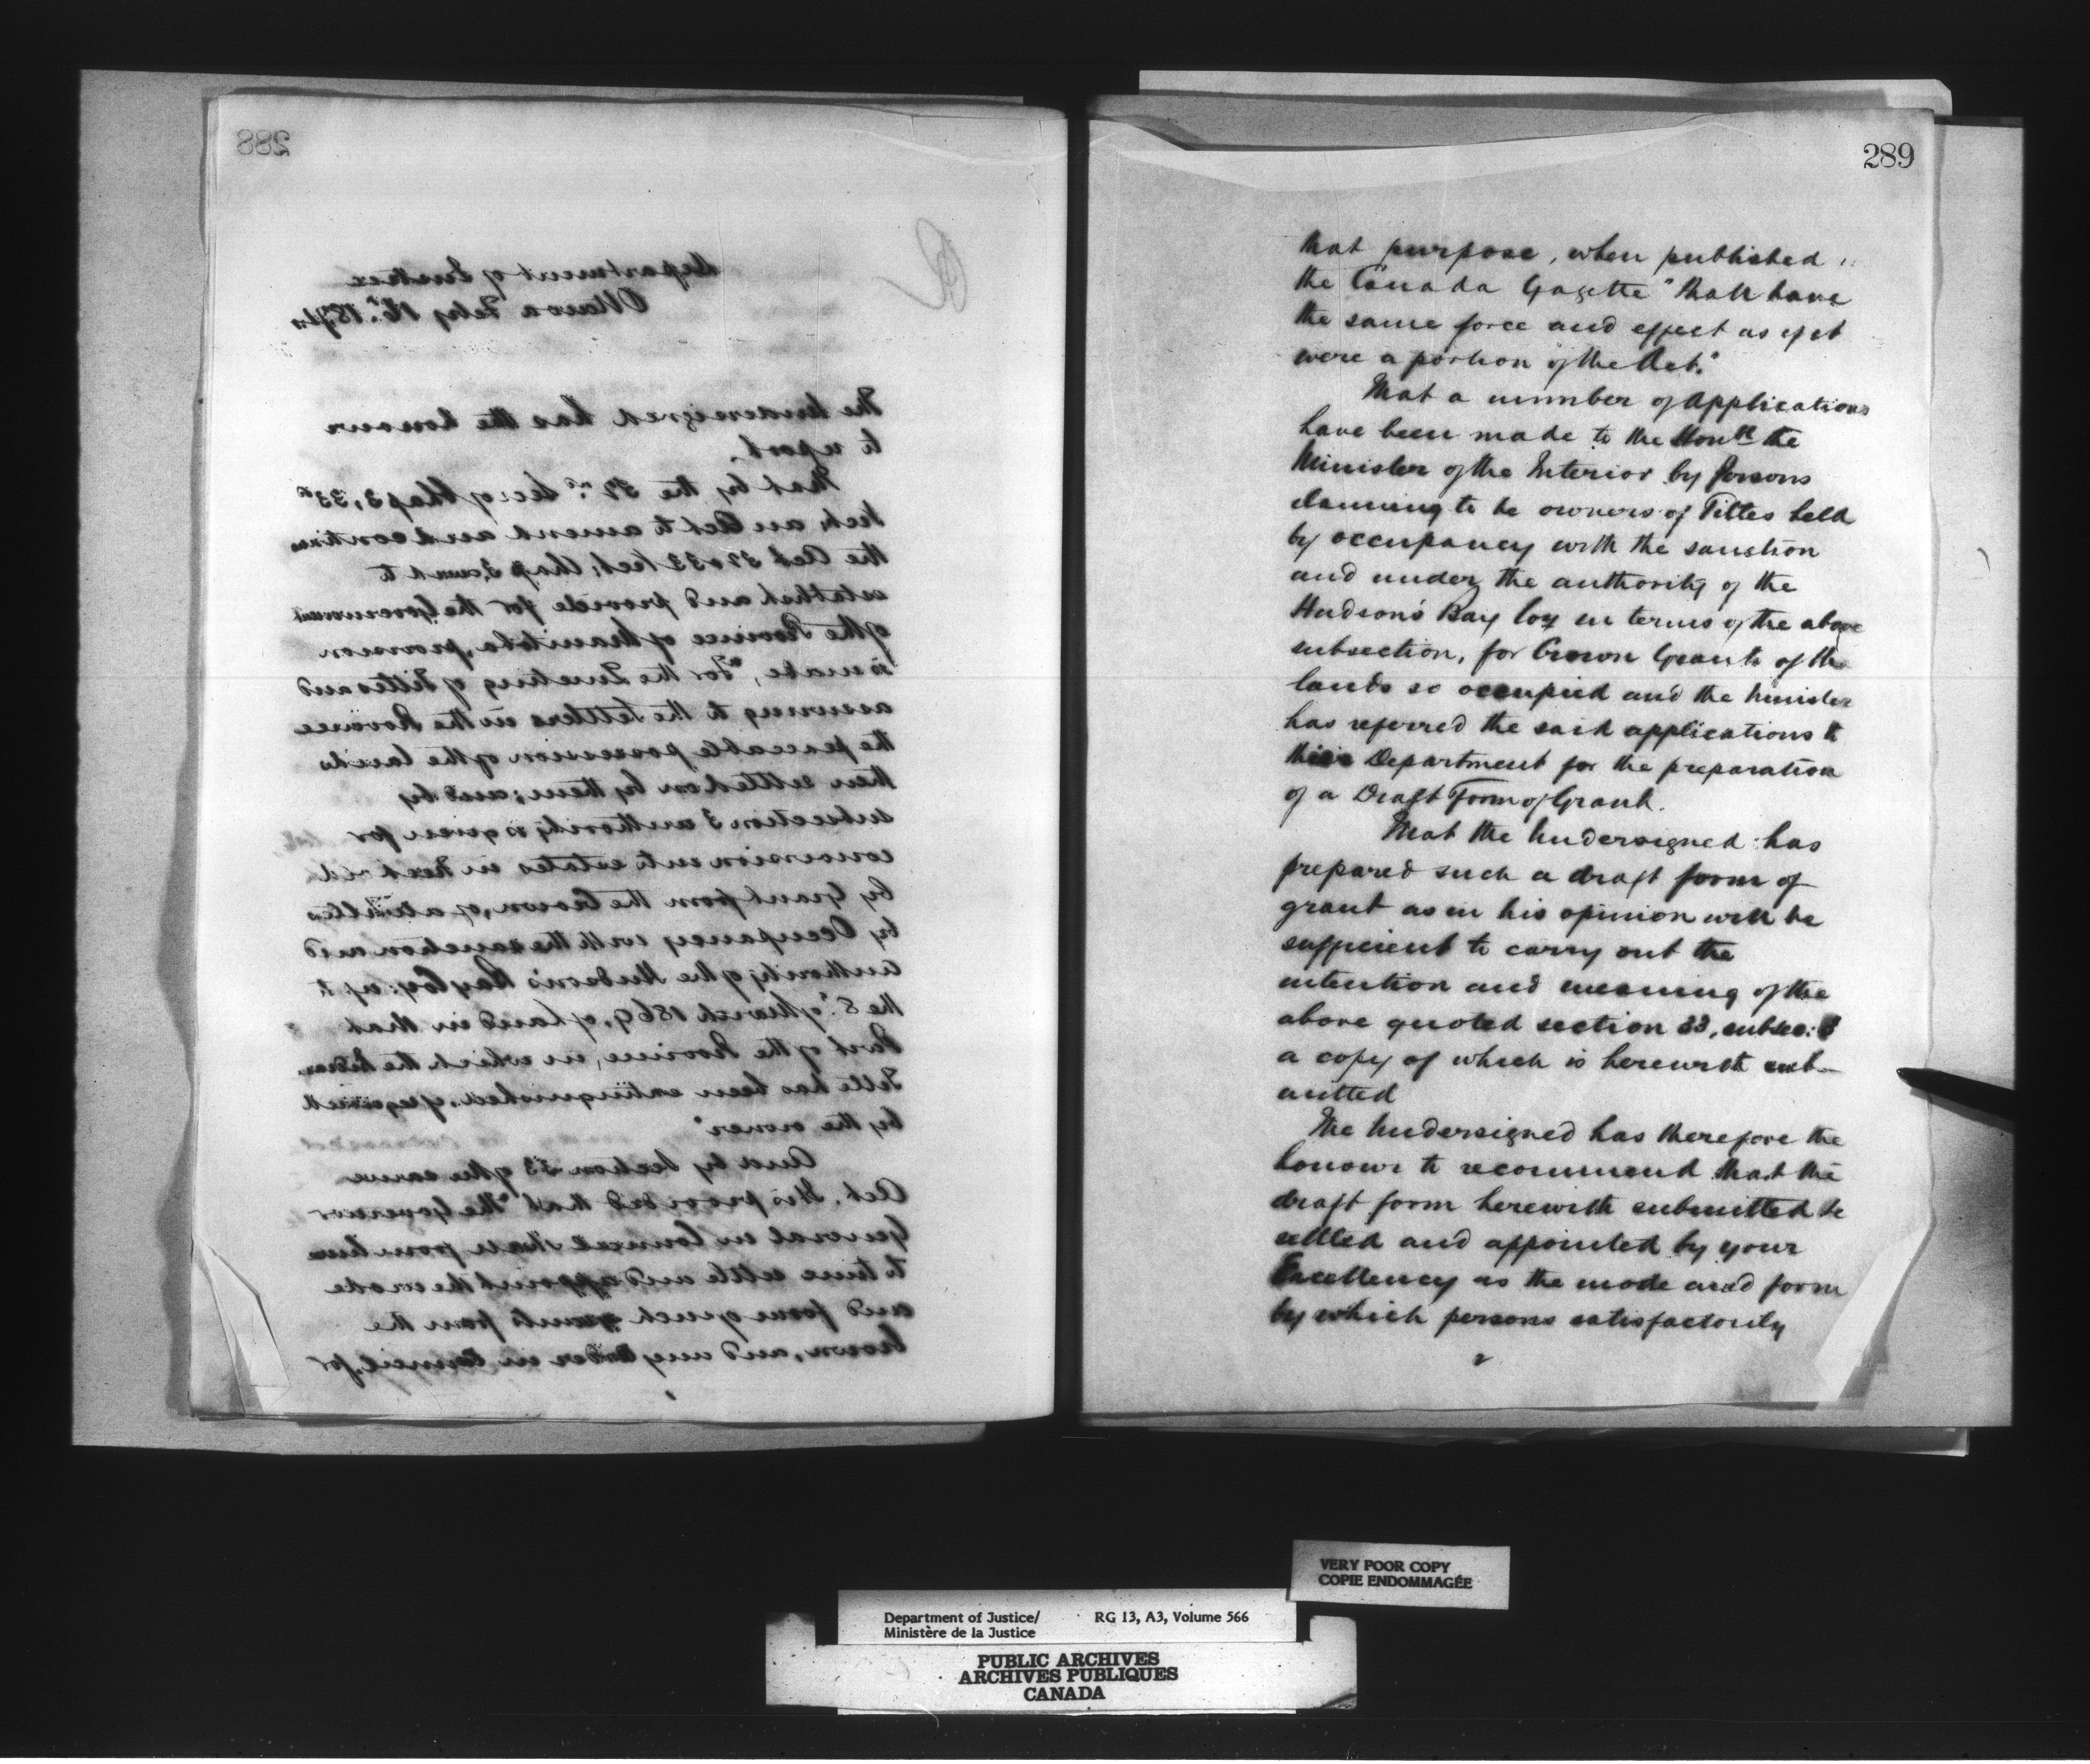 288
Department of Justice
Ottawa Feby 16th 1874
The Undersigned has the honour
to report.
That by the 32nd Sec of Chap 3, 33rd
Vict, an Act to amend and continue
the Act 32 & 33 Vict; Chap 3, and to
establish and provide for the Government
of the Province of Manitoba, provision
is made, "For the Quieting of Titles and
assuring to the Settlers in the Province
the peaceable possession of the lands
then settled on by them; and by
subsection 3 authority is given for
conversion into estates in freehold
by Grant from the Crown, of all titles
by Occupancy with the sanction and
authority of the Hudson's Bay Coy: up to
the 8th of March 1869, of land in that
Part of the Province, in which the Indian
Title has been extinguished, if required
by the owner"
And by Section 33 of the same
Act. It is provided that "the Governor
General in Council shall from time
to time settle and appoint the mode
and form of such grants from the
Crown, and any Order in Council, for
289
that purpose, when published
the Canada Gazette "shall have
the same force and effect as if it
were a portion of the Act."
That a number of Applications
have been made to the Honble the
Minister of the Interior by Persons
claiming to be owners of Titles held
by occupancy with the sanction
and under the authority of the
Hudson's Bay Coy in terms of the above
subsection, for Crown Grants of the
lands so occupied and the Minister
has referred the said applications to
this Department for the preparation
of a Draft Form of Grant.
That the Undersigned has
prepared such a draft form of
grant as in his opinion will be
sufficient to carry out the
intention and meaning of the
above quoted section 33, subsec: 3
a copy of which is herewith sub-
mitted
The Undersigned has therefore the
honour to recommend that the
draft form herewith submitted be
settled and appointed by your
Excellency as the mode and form
by which persons satisfactorily
2
VERY POOR COPY
COPIE ENDOMMAGÉE
Department of Justice/ RG 13, A3, Volume 566
Ministère de la Justice
PUBLIC ARCHIVES
ARCHIVES PUBLIQUES
CANADA